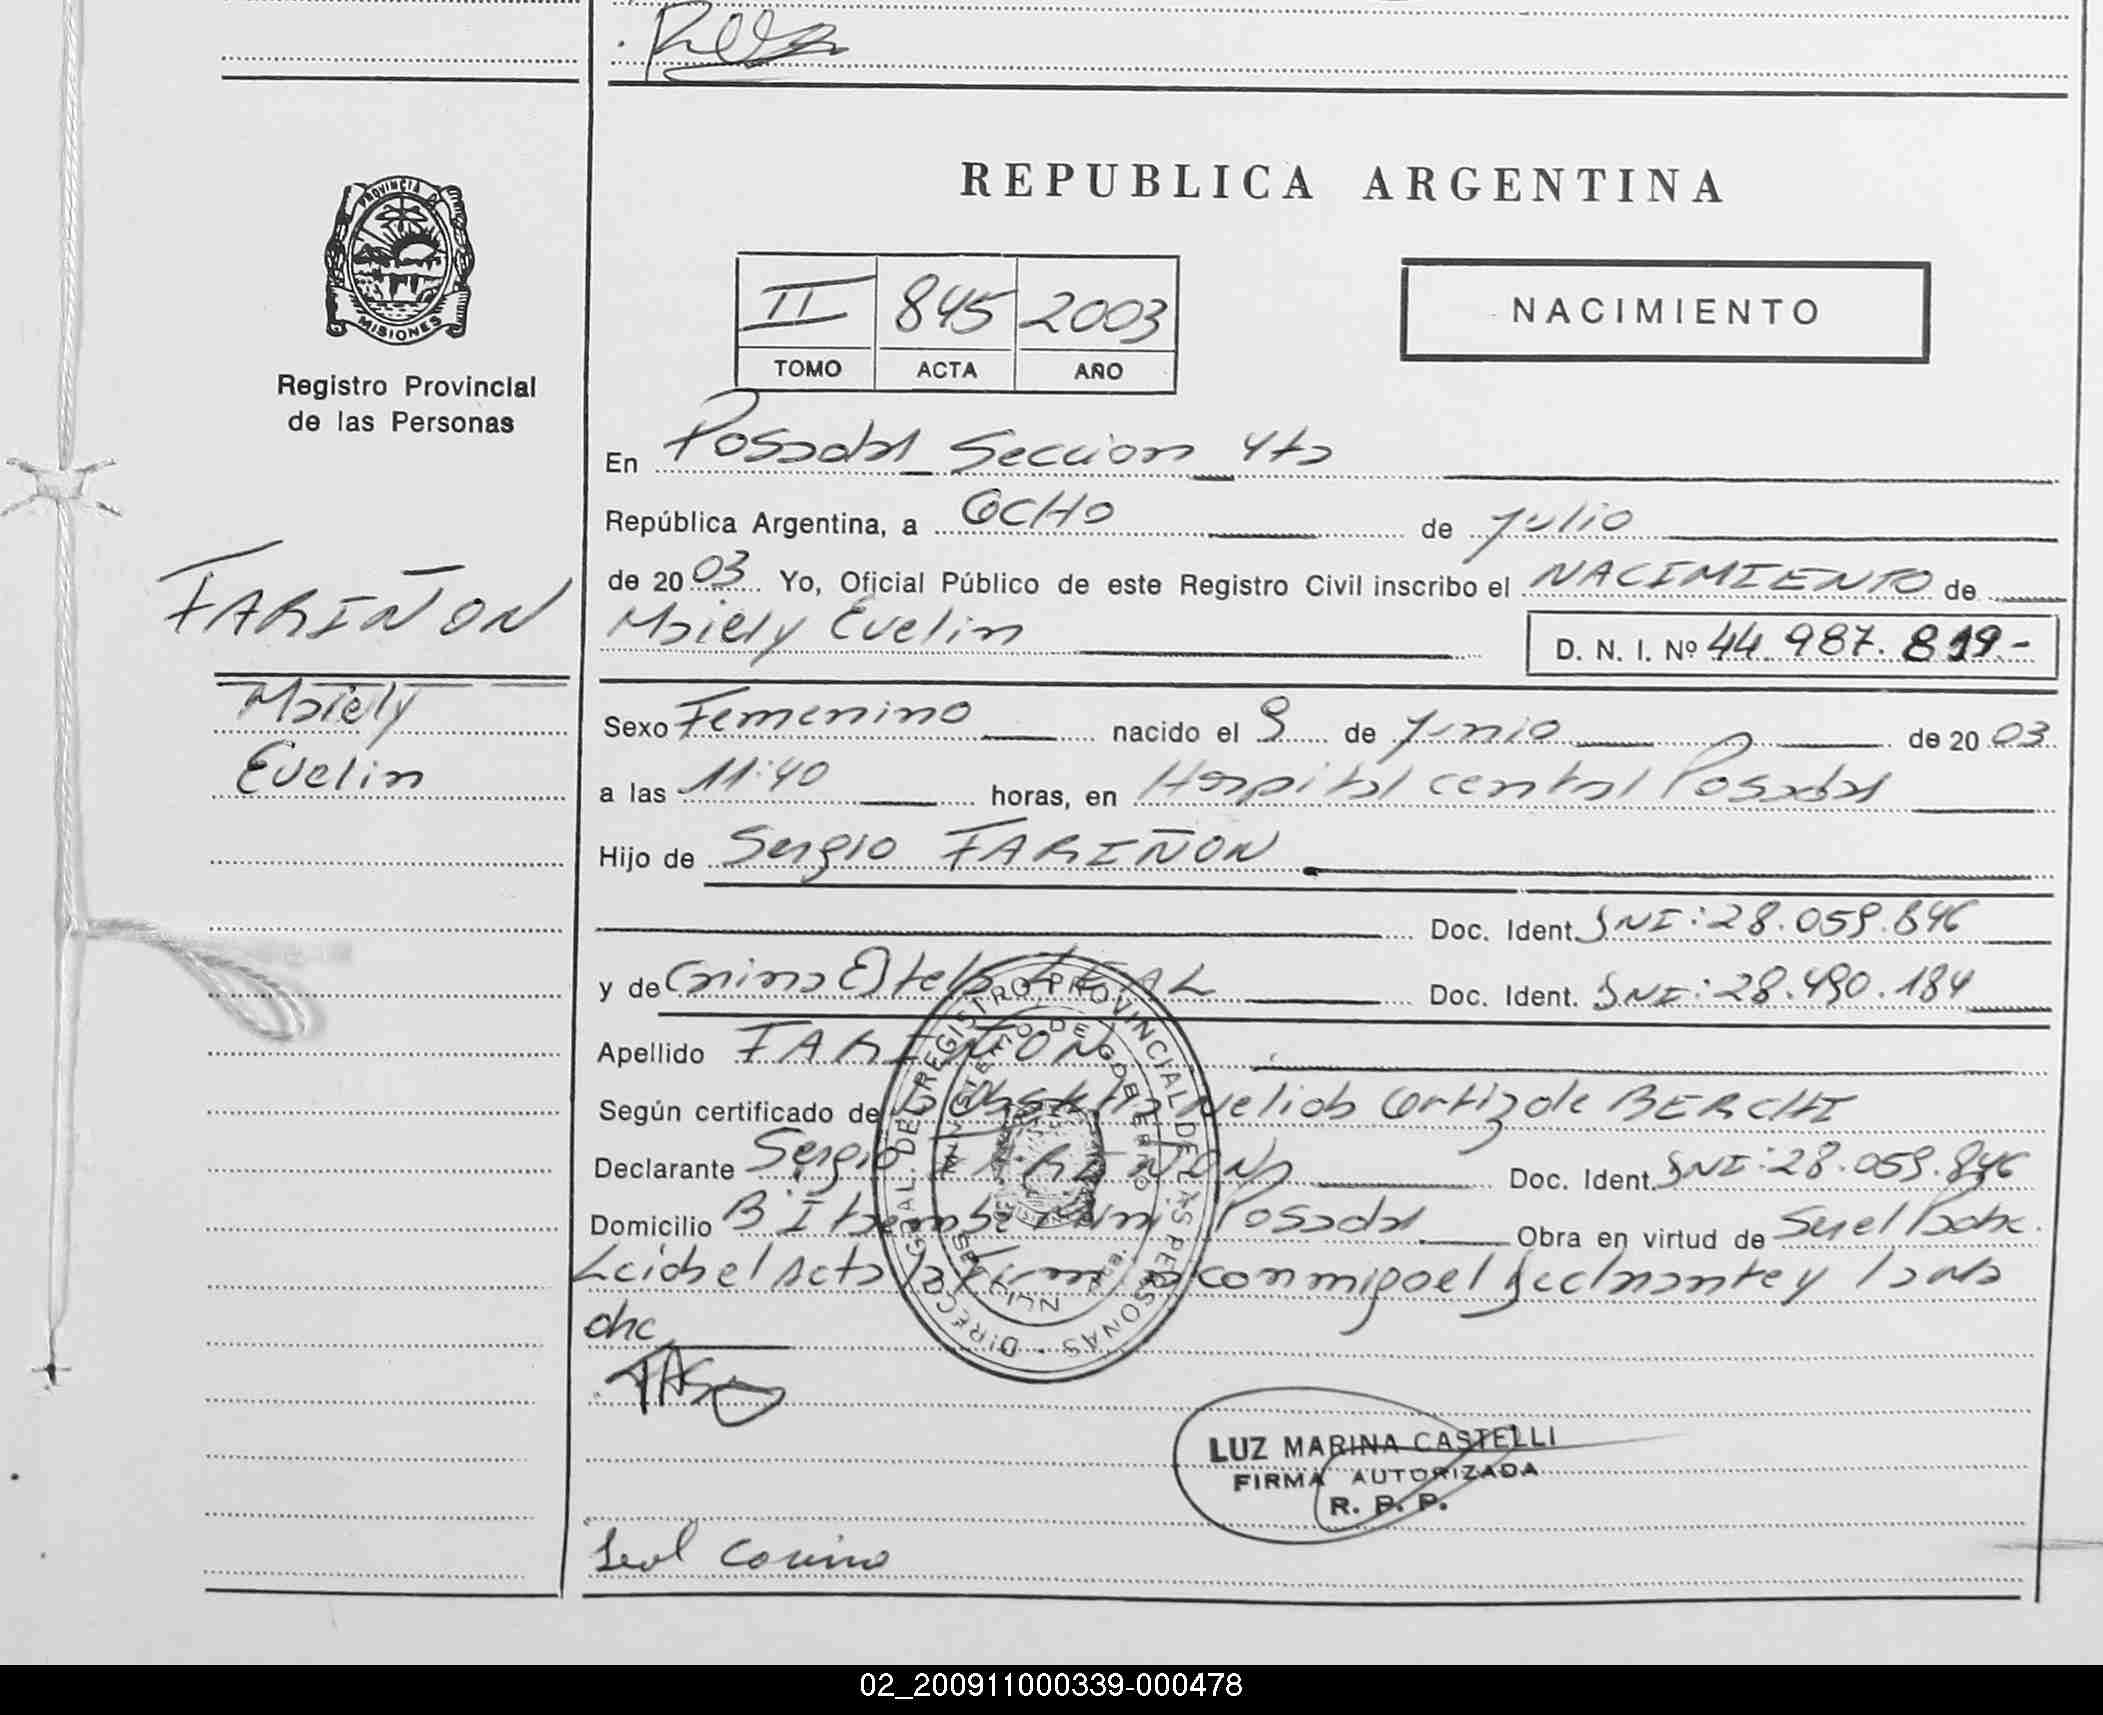 REPUBLICA ARGENTINA
PROVINCIA DE
MISIONES
Registro Provincial
de las Personas
II 845 2003
TOMO ACTA AÑO
NACIMIENTO
En Posadas Seccion 4ta
República Argentina, a OCHO de Julio
de 2003 Yo, Oficial Público de este Registro Civil inscribo el NACIMIENTO de
FARIÑON
Maiely Evelin
D. N. I. Nº 44.987.819.-
Maiely
Evelin
Sexo Femenino nacido el 9 de Junio de 2003
a las 11:40 horas, en Hospital central Posadas
Hijo de Sergio FARIÑON
Doc. Ident. DNI: 28.059.846
y de Corina Estela LEAL Doc. Ident. DNI: 28.490.184
Apellido FARIÑON
Según certificado de Obstetra Nelida Cortiz de BERCHI
Declarante Sergio FARIÑON Doc. Ident. DNI: 28.059.846
Domicilio B Itaembe Mini Posadas Obra en virtud de Ser el Padre.
Leida el Acta la Firma conmigo el declarante y la Ma
dre
DIRECC. GRAL. DEL REGISTRO PROVINCIAL DE LAS PERSONAS
MINISTERIO DE GOBIERNO
LUZ MARINA CASTELLI
FIRMA AUTORIZADA
R. P. P.
Leal Corina
02_200911000339-000478